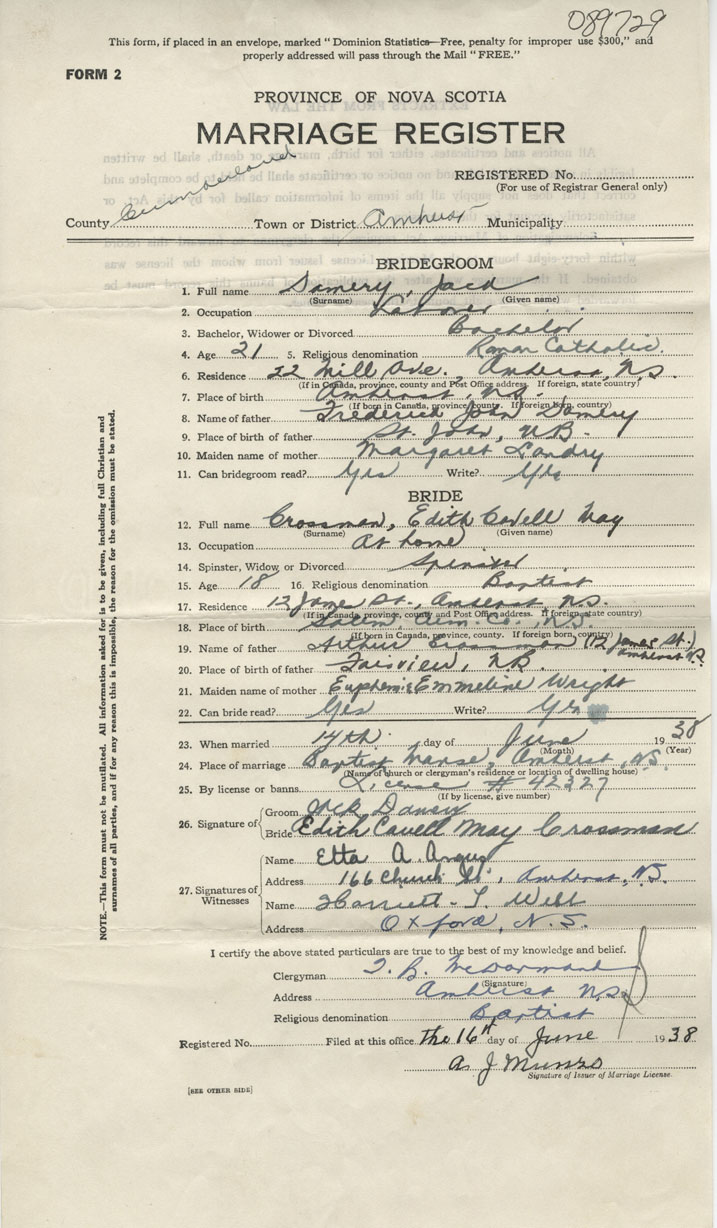 089729
This form, if placed in an envelope, marked "Dominion Statistics—Free, penalty for improper use $300," and
properly addressed will pass through the Mail "FREE."
FORM 2
PROVINCE OF NOVA SCOTIA
MARRIAGE REGISTER
REGISTERED No.
(For use of Registrar General only)
County Cumberland Town or District Amherst Municipality
BRIDEGROOM
1. Full name Damery, Jack
(Surname) (Given name)
2. Occupation Labourer
3. Bachelor, Widower or Divorced Bachelor
4. Age 21 5. Religious denomination Roman Catholic.
6. Residence 22 Mill Ave., Amherst, N.S.
(If in Canada, province, county and Post Office address. If foreign, state country)
7. Place of birth Amherst, N.S.
(If born in Canada, province, county. If foreign born, country)
8. Name of father Frederick John Damery
9. Place of birth of father St. John, N.B.
10. Maiden name of mother Margaret Landry
11. Can bridegroom read? Yes Write? Yes
BRIDE
12. Full name Crossman, Edith Cavell May
(Surname) (Given name)
13. Occupation At home
14. Spinster, Widow or Divorced Spinster
15. Age 18 16. Religious denomination Baptist
17. Residence 12 James St., Amherst N.S.
(If in Canada, province, county and Post Office address. If foreign, state country)
18. Place of birth Salem, Cum. Co., N.S.
(If born in Canada, province, county. If foreign born, country)
19. Name of father Arthur Crossman (12 James St.)
Amherst N.S.
20. Place of birth of father Fairview, N.B.
21. Maiden name of mother Euphemie Emmeline Wright
22. Can bride read? Yes Write? Yes
23. When married 14th day of June 1938
(Month) (Year)
24. Place of marriage Baptist Manse, Amherst, N.S.
(Name of church or clergyman's residence or location of dwelling house)
25. By license or banns License # 42327
(If by license, give number)
26. Signature of Groom Jack Damery
Bride Edith Cavell May Crossman
27. Signatures of Witnesses
Name Etta A. Angus
Address 166 Church St., Amherst, N.S.
Name Harriett T. Will
Address Oxford, N.S.
I certify the above stated particulars are true to the best of my knowledge and belief.
Clergyman T. B. McDormand
(Signature)
Address Amherst N.S.
Religious denomination Baptist
Registered No. Filed at this office the 16th day of June 1938.
A. J. Munro
Signature of Issuer of Marriage License.
[SEE OTHER SIDE]
NOTE.—This form must not be mutilated. All information asked for is to be given, including full Christian and
surnames of all parties, and if for any reason this is impossible, the reason for the omission must be stated.